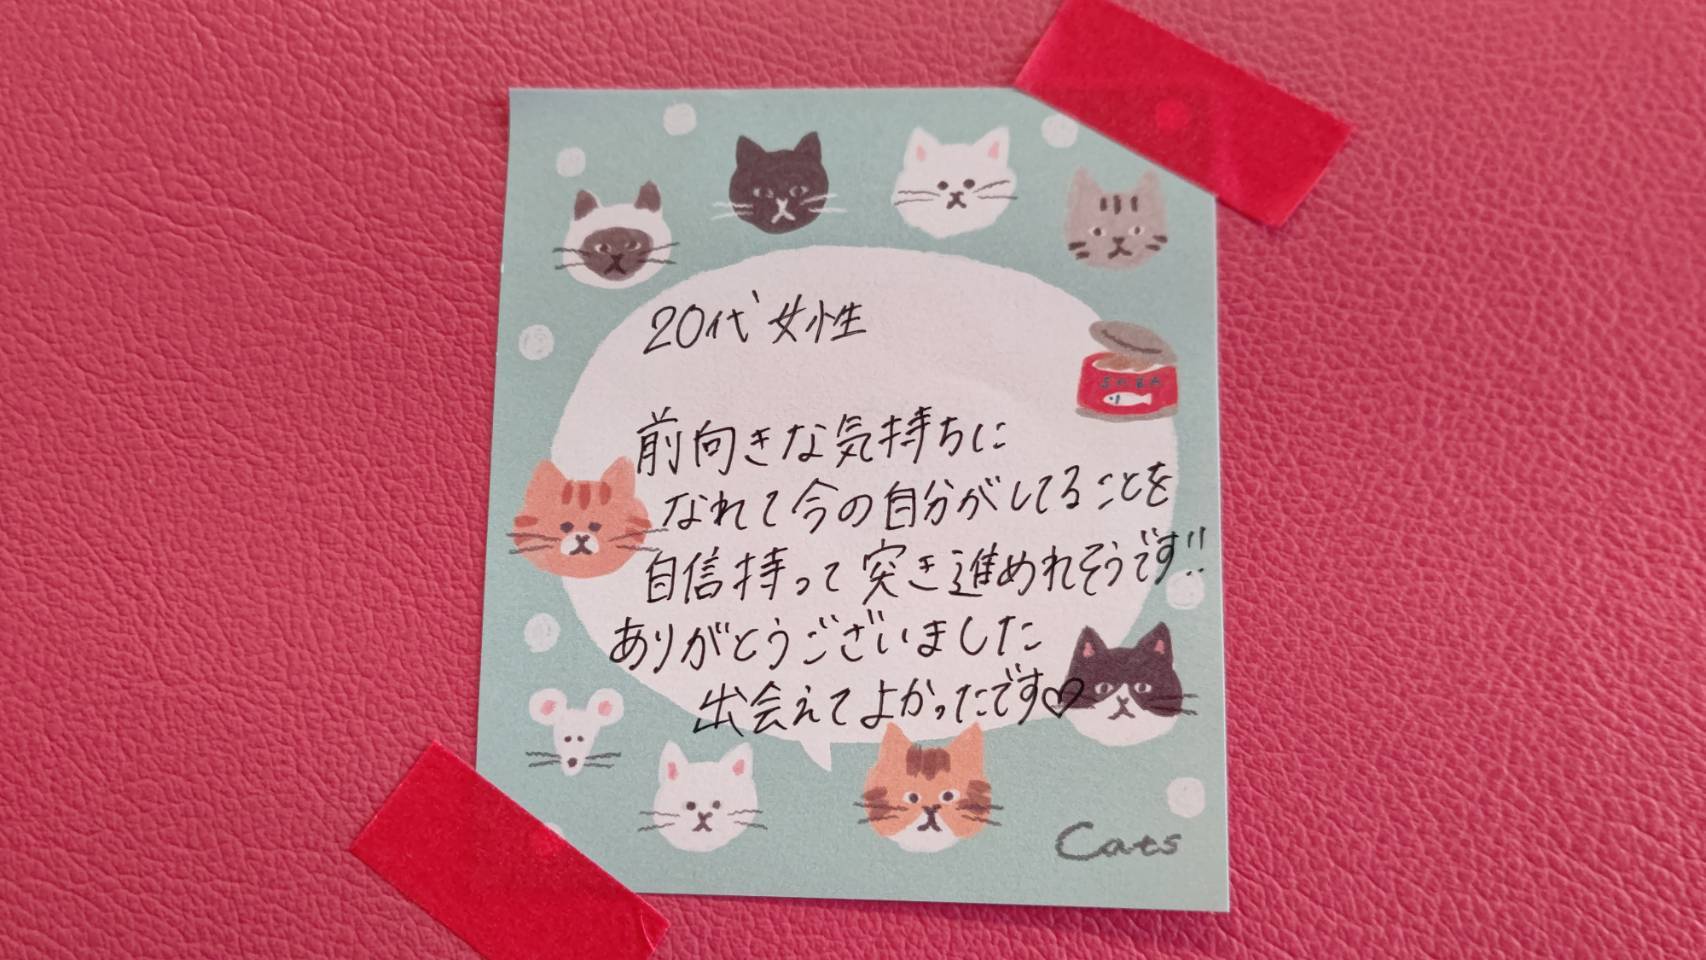 20代 女性
前向きな気持ちに
なれて今の自分がしてることを
自信持って突き進めれそうです!!
ありがとうございました
出会えてよかったです♡
SABA
Cats